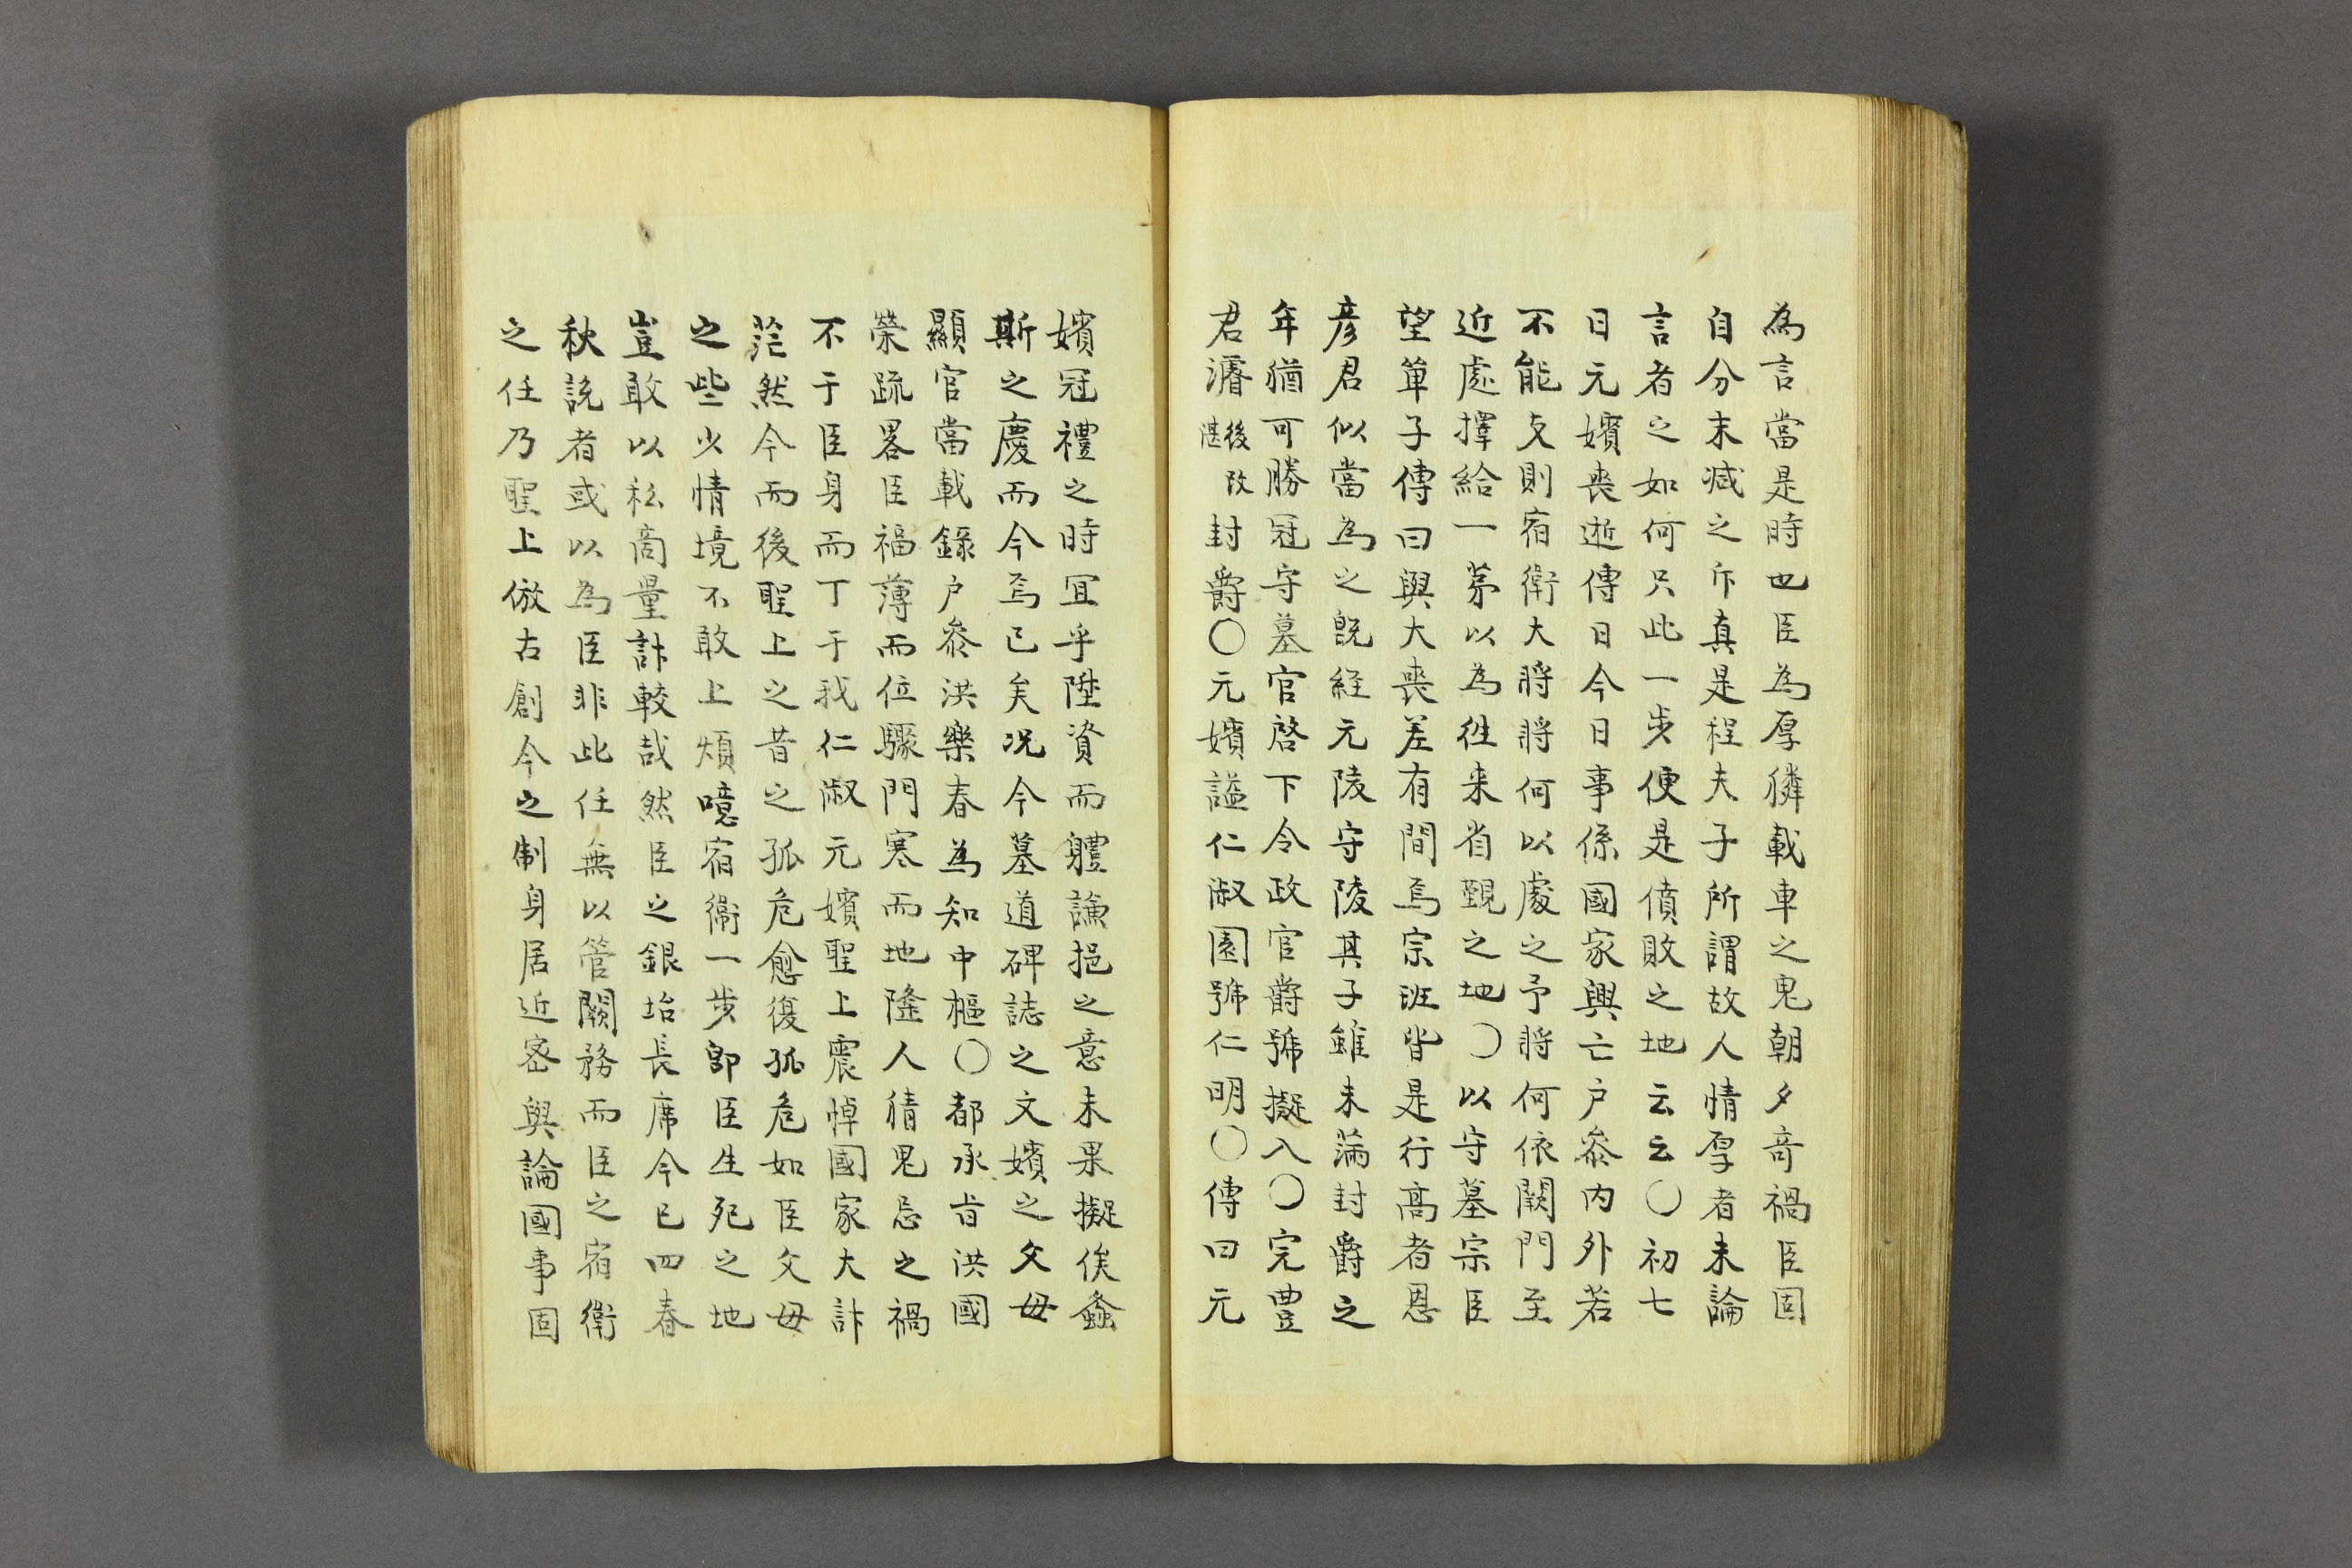 為言當是時也臣為厚隣載車之鬼朝夕奇禍臣固
自分末減之斥真是程夫子所謂故人情厚者未論
言者之如何只此一步便是僨敗之地云云〇初七
日元嬪喪逝傳曰今日事係國家興亡戶叅內外若
不能支則宿衛大將將何以處之予將何依闕門至
近處擇給一茅以為徃来省覲之地〇以守墓宗臣
望單子傳曰與大喪差有間焉宗班皆是行髙者恩
彦君似當為之旣経元陵守陵其子雖未滿封爵之
年猶可勝冠守墓官啓下令政官爵號擬入〇完豊
君濬後改湛封爵〇元嬪謚仁淑園號仁明〇傳曰元
嬪冠禮之時冝乎陞資而軆謙挹之意未果擬俟螽
斯之慶而今焉已矣况今墓道碑誌之文嬪之父母
顯官當載錄戶叅洪樂春為知中樞〇都承旨洪國
榮疏畧臣福薄而位驟門寒而地隆人猜鬼忌之禍
不于臣身而丁于我仁淑元嬪聖上震悼國家大計
茫然今而後聖上之昔之孤危愈復孤危如臣父母
之些少情境不敢上煩噫宿衞一步即臣生死之地
豈敢以私啇量計較哉然臣之銀坮長席今已四春
秋説者或以為臣非此任無以管闕務而臣之宿衛
之任乃聖上倣古創今之制身居近宻與論國事固